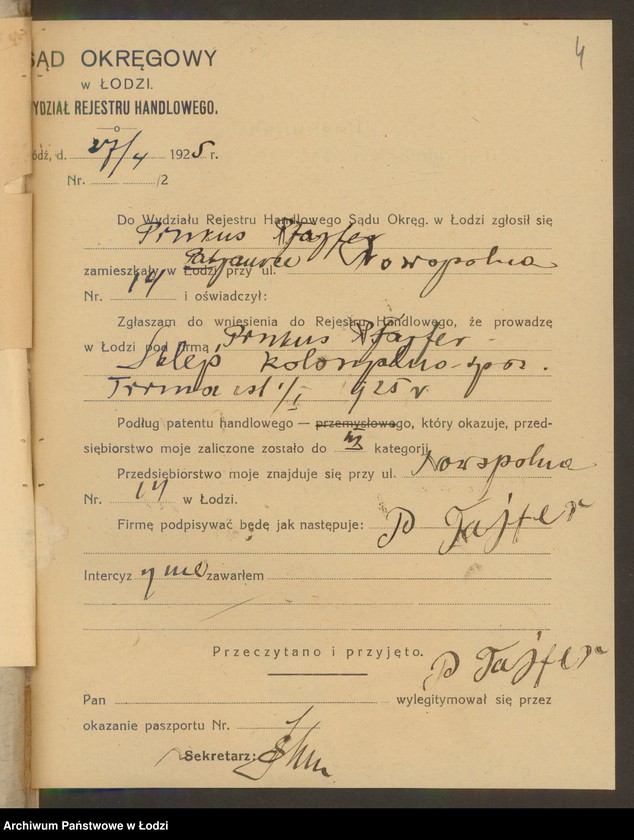 4
SĄD OKRĘGOWY
w ŁODZI.
WYDZIAŁ REJESTRU HANDLOWEGO.
ódź, d. 27/4 1925 r.
Nr. /2
Do Wydziału Rejestru Handlowego Sądu Okręg. w Łodzi zgłosił się
Pinkus Tajfer
zamieszkały w Łodzi przy ul. Nowopolna
Nr. 14 i oświadczył:
Zgłaszam do wniesienia do Rejestru Handlowego, że prowadzę
w Łodzi pod firmą Pinkus Tajfer
Sklep kolonjalno-spoż.
Firma ist 1/I 925 r
Podług patentu handlowego — przemysłowego, który okazuje, przed-
siębiorstwo moje zaliczone zostało do III kategorji
Przedsiębiorstwo moje znajduje się przy ul. Nowopolna
Nr. 14 w Łodzi.
Firmę podpisywać będę jak następuje: P Tajfer
Intercyzy nie zawarłem
Przeczytano i przyjęto.
P Tajfer
Pan wylegitymował się przez
okazanie paszportu Nr.
Sekretarz:
Archiwum Państwowe w Łodzi